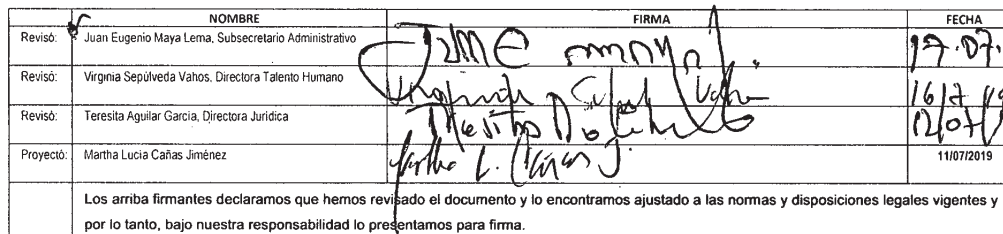 NOMBRE FIRMA FECHA
Revisó: Juan Eugenio Maya Lema, Subsecretario Administrativo 17.07.
Revisó: Virginia Sepúlveda Vahos, Directora Talento Humano Virginia Sepulv Vahos 16/7/19
Revisó: Teresita Aguilar Garcia, Directora Jurídica Teresita 12/07/
Proyectó: Martha Lucia Cañas Jiménez Martha L. Cañas J. 11/07/2019
Los arriba firmantes declaramos que hemos revisado el documento y lo encontramos ajustado a las normas y disposiciones legales vigentes y
por lo tanto, bajo nuestra responsabilidad lo presentamos para firma.